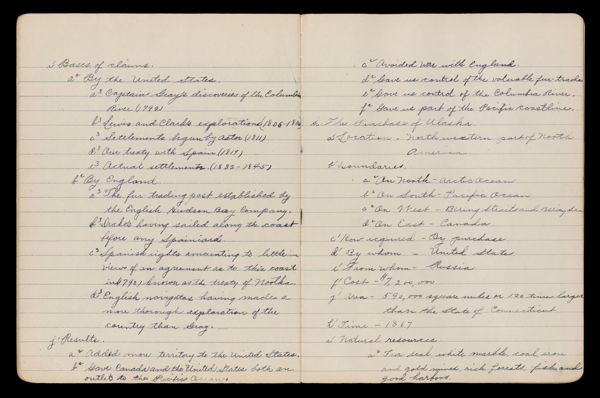 i' Bases of claims.
a² By the United States.
a³ Captain Gray's discoveries of the Columbia
River (1792)
b³ Lewis and Clark's explorations (1805-1806)
c³ Settlements begun by Astor (1811)
d³ Our treaty with Spain (1819)
e³ Actual settlements (1832-1845)
b² By England
a³ The fur trading post established by
the English Hudson Bay Company.
b³ Drake having sailed along the coast
before any Spainiards.
c³ Spanish rights amounting to little in
view of an agreement as to this coast
in 1790, known as the treaty of Nootka.
d³ English navigators having made a
more thorough exploration of the
country than Gray.
j' Results.
a² Added more territory to the United States.
b² Gave Canada and the United States both an
outlet to the Pacific Ocean.
c² Avoided War with England.
d² Gave us control of the valuable fur trade
e² Gave us control of the Columbia River.
f² Gave us part of the Pacific coastline.
The Purchase of Alaska
a' Location - Northwestern part of North
America
b' Boundaries
a² On North - Arctic Ocean
b² On South - Pacific Ocean
c² On West - Bering Strait and Bering Sea
d² On East - Canada
c' How acquired - By purchase
d' By whom - United States
e' From whom - Russia
f' Cost - $7,200,000
g' Area - 590,000 square miles or 120 times larger
than the State of Connecticut
h' Time - 1867
i' Natural resources
a² Fur seal white marble, coal iron
and gold mines, rich forests, fish and
good harbors.